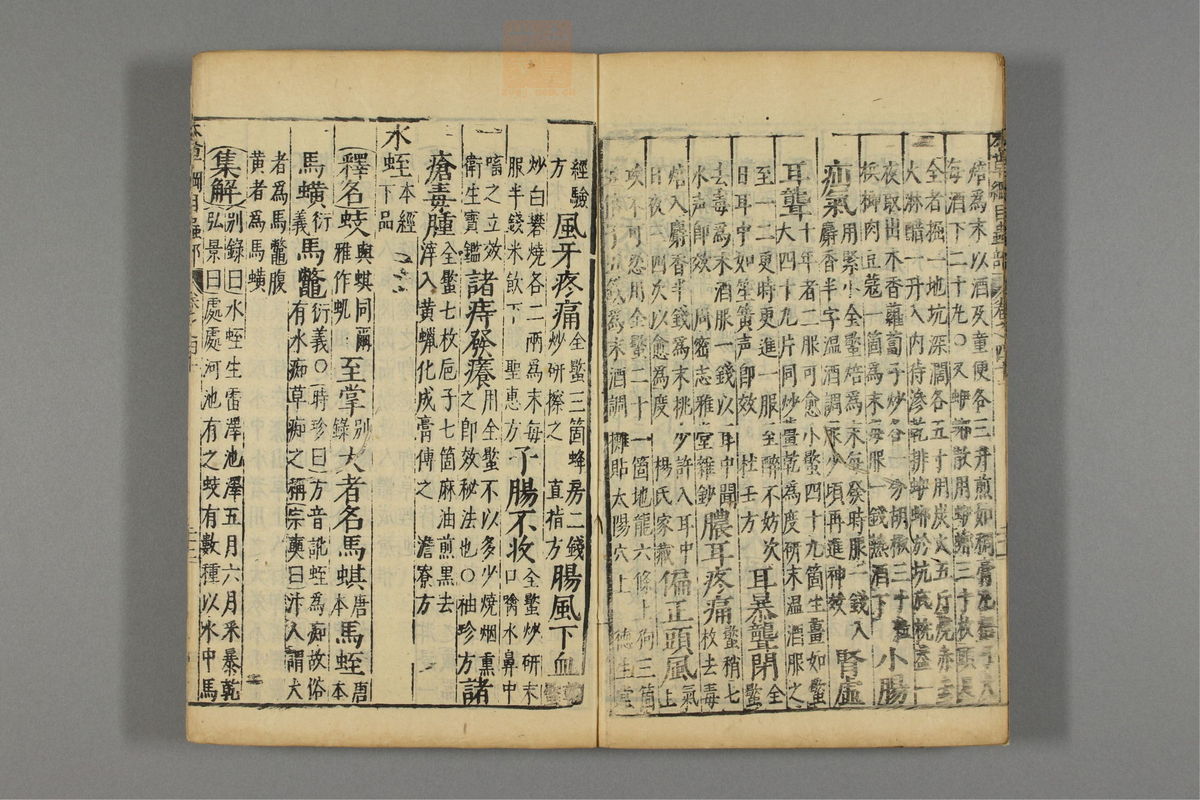 焙為末以酒及童便各三升煎如稠膏丸梧子大
每酒下二十丸○又蛜螂散用蛜螂三十枚頭足
全者掘一地坑深濶各五寸用炭火五斤燒赤去
火淋醋一升入內待滲乾排蛜螂於坑底椀蓋一
夜取出木香蘿蔔子炒各一分胡椒三十粒
檳榔肉豆蔻一箇為末每服一錢熱酒下 小腸
疝氣 用緊小全蠍焙為末每發時服一錢入
麝香半字温酒調服少頃再進神效 腎虛
耳聾 十年者二服可愈小蠍四十九箇生薑如蠍
大四十九片同炒薑乾為度研末温酒服之
至一二更時更進一服至醉不妨次
日耳中如笙簧声即效 杜壬方 耳暴聾閉 全蠍
去毒為末酒服一錢以耳中聞
水声即效 周密志雅堂雜鈔 膿耳疼痛 蠍稍七枚去毒
焙入麝香半錢為末挑少許入耳中
日夜三四次以愈為度 楊氏家藏 偏正頭風 氣上
攻不可忍用全蠍二十一箇地龍六條土狗三箇
錢為末酒調攤貼太陽穴上 德生堂
經驗方 風牙疼痛 全蠍三箇蜂房二錢
炒研擦之 直指方 腸風下血 乾蠍
炒白礬燒各二兩為末每
服半錢米飲下 聖惠方 子腸不收 全蠍炒研末
口噙水鼻中
㗜之立效
衛生寶鑑 諸痔發癢 用全蠍不以多少燒烟熏
之即效秘法也○袖珍方 諸
瘡毒腫 全蠍七枚巵子七箇麻油煎黑去
滓入黃蠟化成膏傅之 澹寮方
水蛭 本經下品
釋名 蚑 與蜞同爾雅作虮 至掌 別錄 大者名馬蜞 唐本 馬蛭 唐本
馬蟥 衍義 馬鼈 衍義○時珍曰方音訛蛭為痴故俗
有水痴草痴之稱宗奭曰汴人謂大
者為馬鼈腹
黃者為馬蟥
集解 別錄曰水蛭生雷澤池澤五月六月采暴乾
弘景曰處處河池有之蚑有數種以水中馬